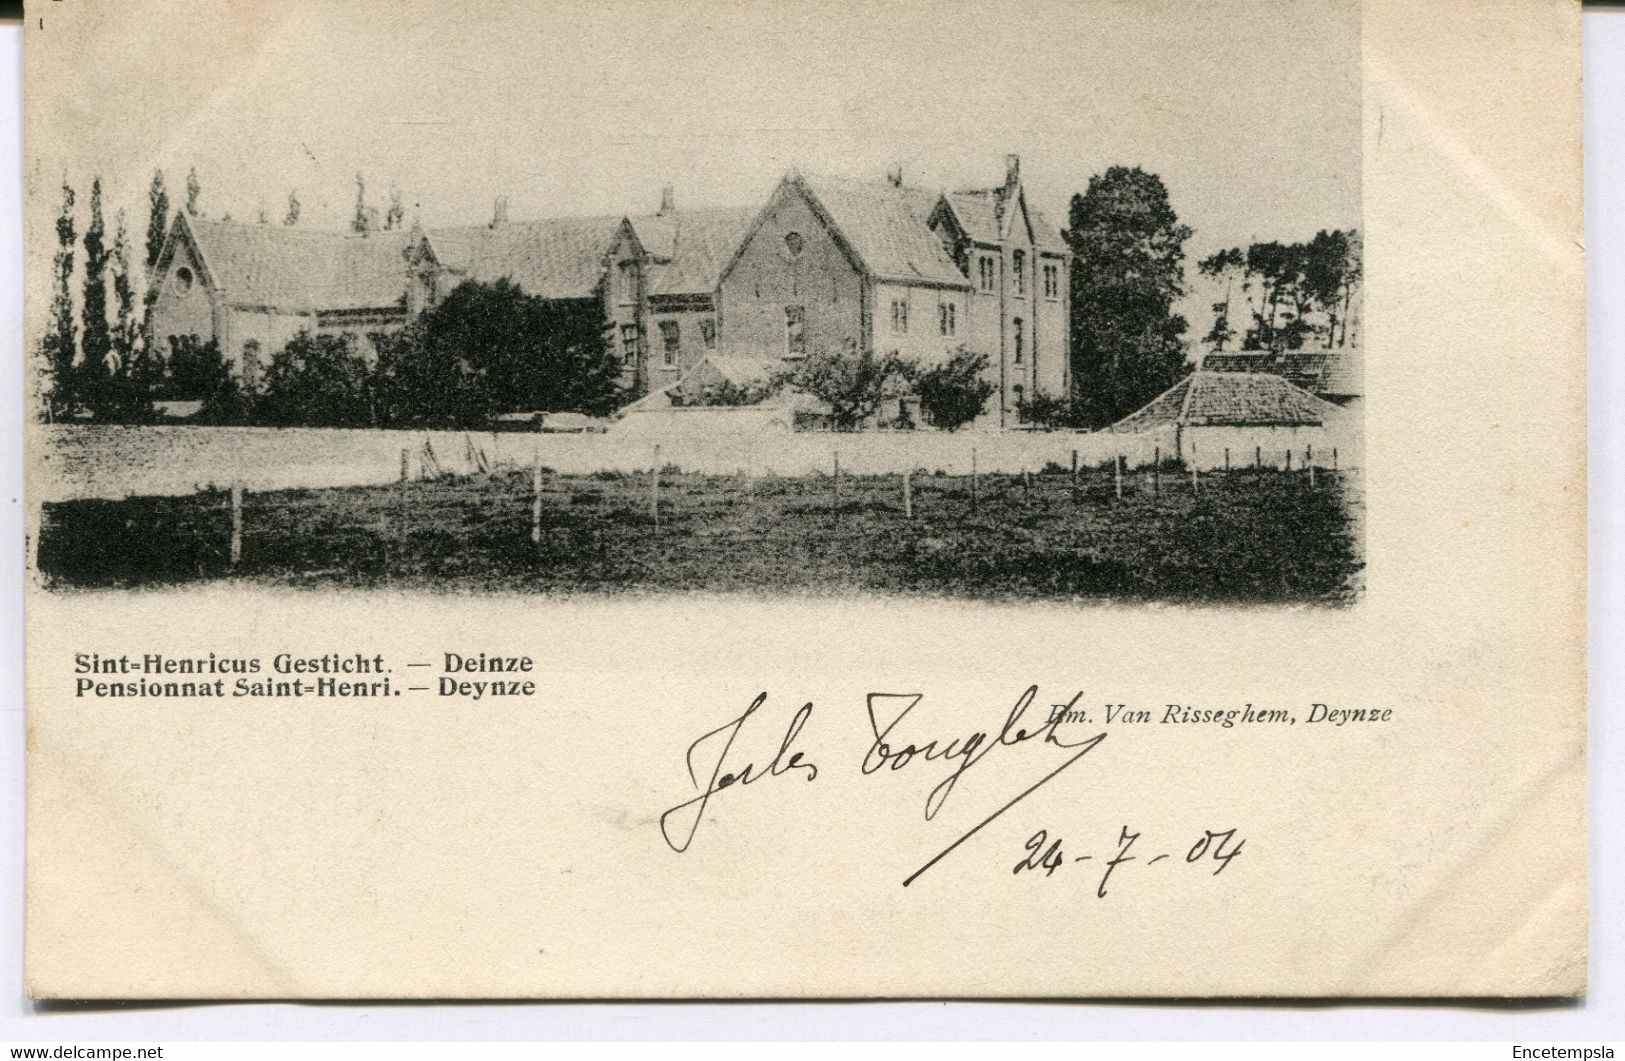 Sint=Henricus Gesticht. — Deinze
Pensionnat Saint=Henri. — Deynze
Em. Van Risseghem, Deynze
Jules Touglet
24-7-04
delcampe.net
Encetempsla